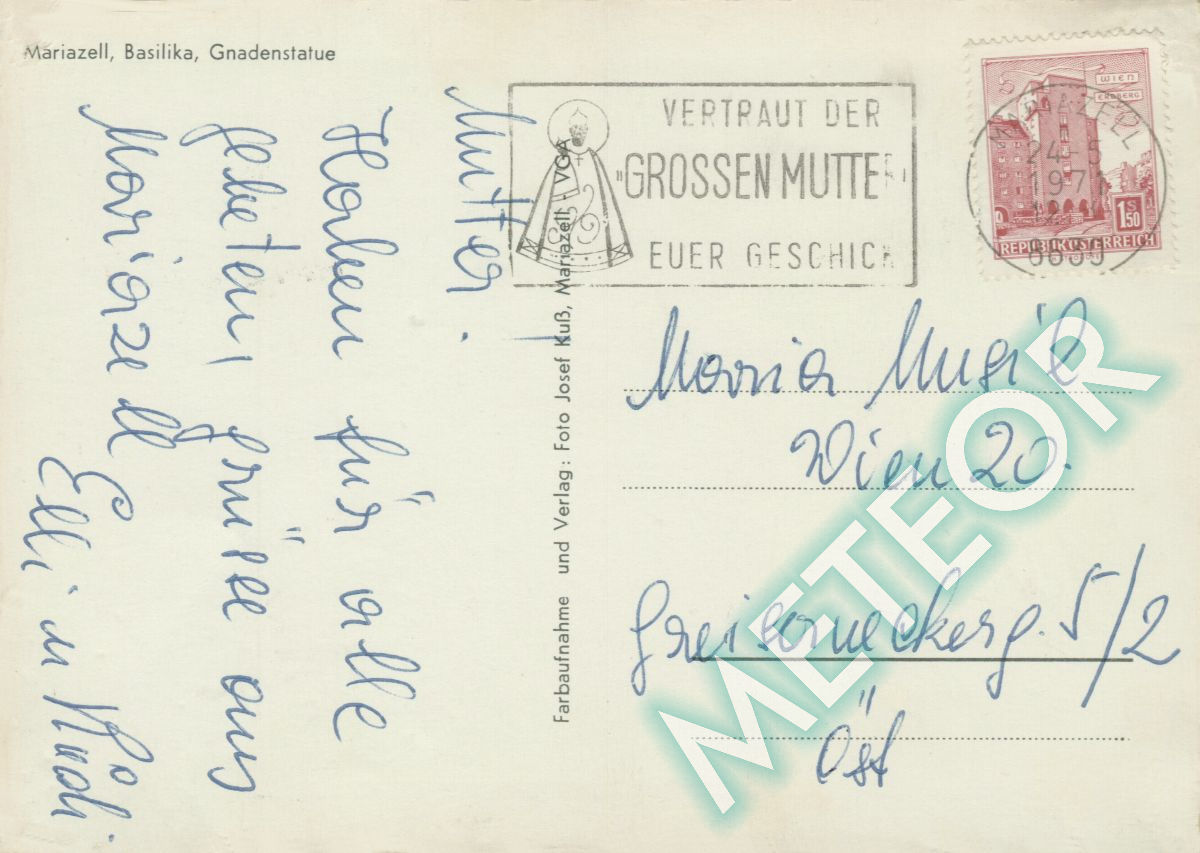 Mariazell, Basilika, Gnadenstatue
Mutter!
Haben für alle
gebeten, Grüsse aus
Mariazell
Elli u
VERTRAUT DER
"GROSSEN MUTTER"
EUER GESCHICK
WIEN
ERDBERG
1 S 50
REPUBLIK ÖSTERREICH
MARIAZELL
24. 5
197
Farbaufnahme und Verlag: Foto Josef Kuß, Mariazell - VGA
Maria Musil
Wien 20.
Greiseneckerg. 5/2
Öst
METEOR